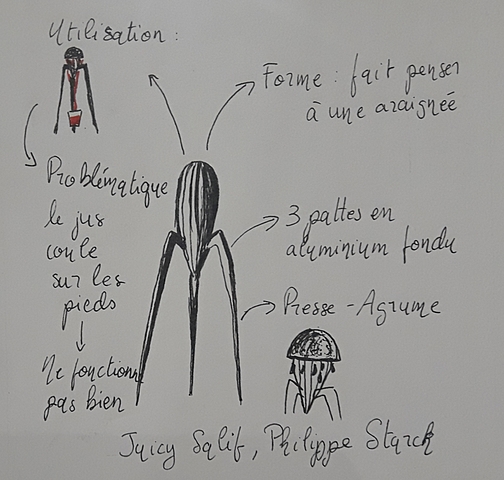 Utilisation :
Forme : fait penser
à une araignée
Problématique
le jus
coule
sur les
pieds
Ne fonctionne
pas bien
3 pattes en
aluminium fondu
Presse-Agrume
Juicy Salif, Philippe Starck